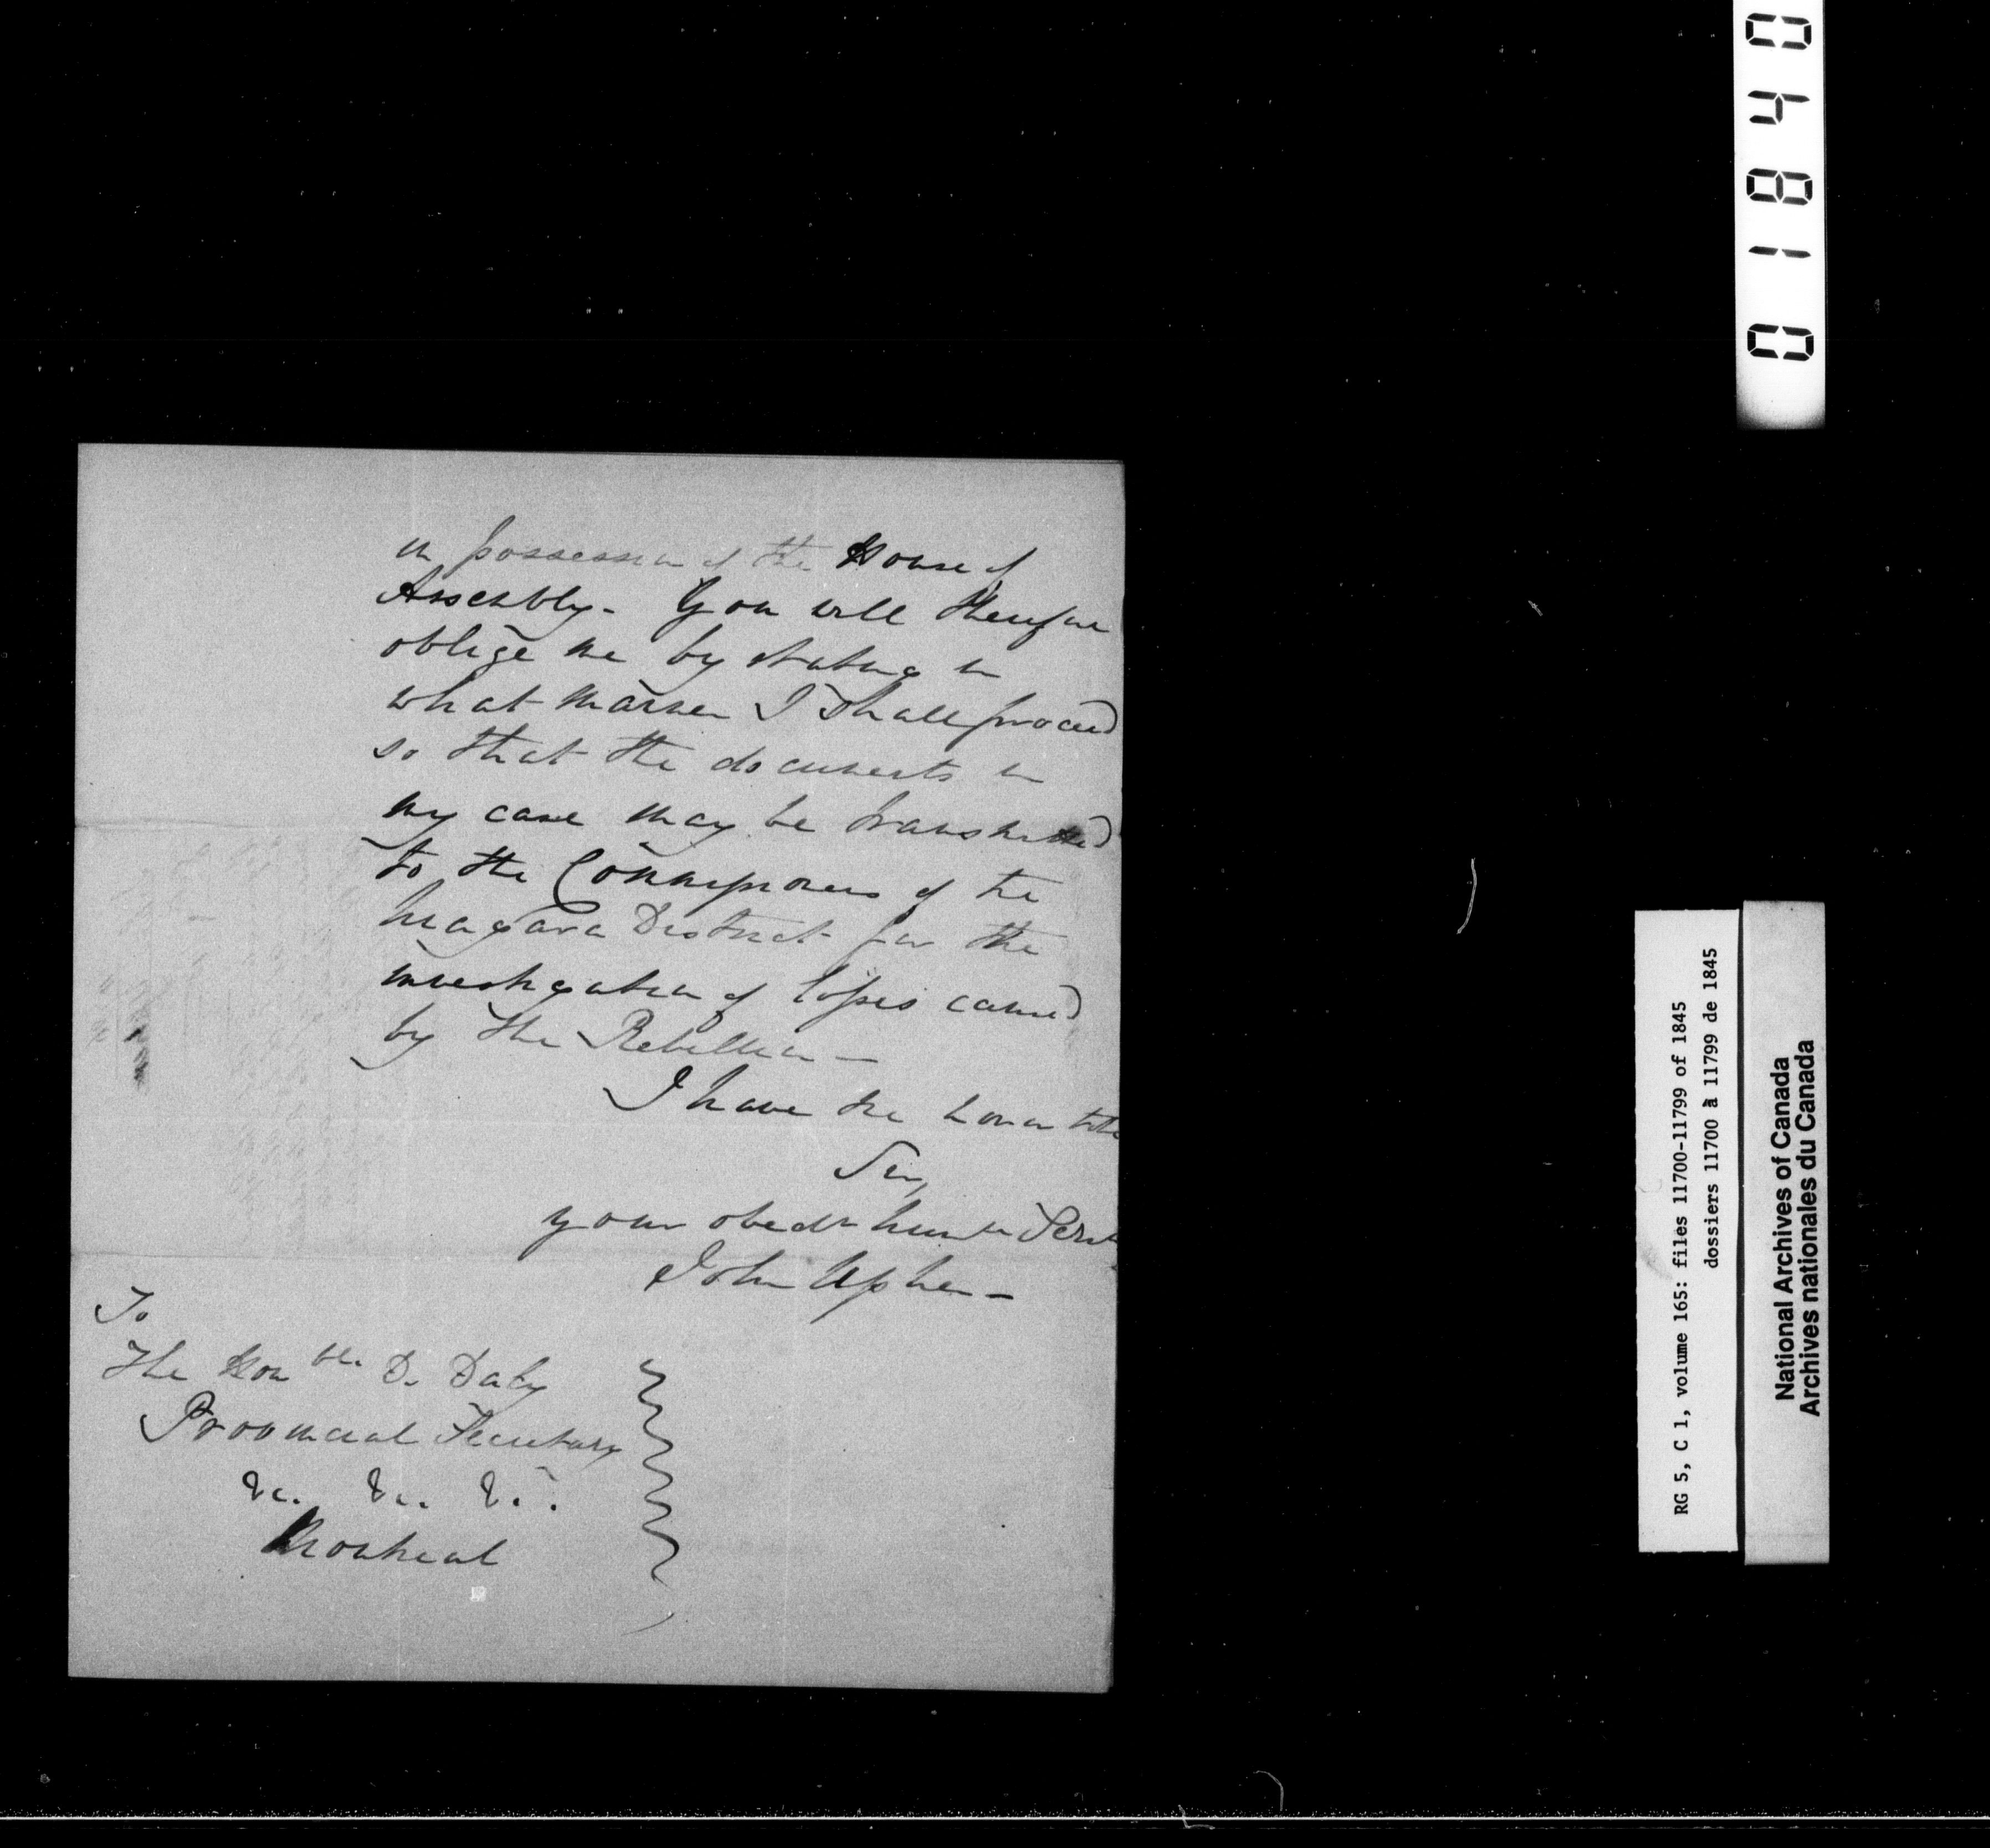 in possession of the House of
Assembly - You will therefore
oblige me by stating in
what manner I shall proceed
so that the documents in
my case may be transmitted
to the Commissioners of the
Niagara District for the
investigation of losses caused
by the Rebellion —
I have the honor to be
Sir,
your obedt humb Servt
John Usher -
To
The Honble. D. Daly
Provincial Secretary
&c. &c. &c.
Montreal
01840
RG 5, C 1, volume 165: files 11700-11799 of 1845
dossiers 11700 à 11799 de 1845
National Archives of Canada
Archives nationales du Canada